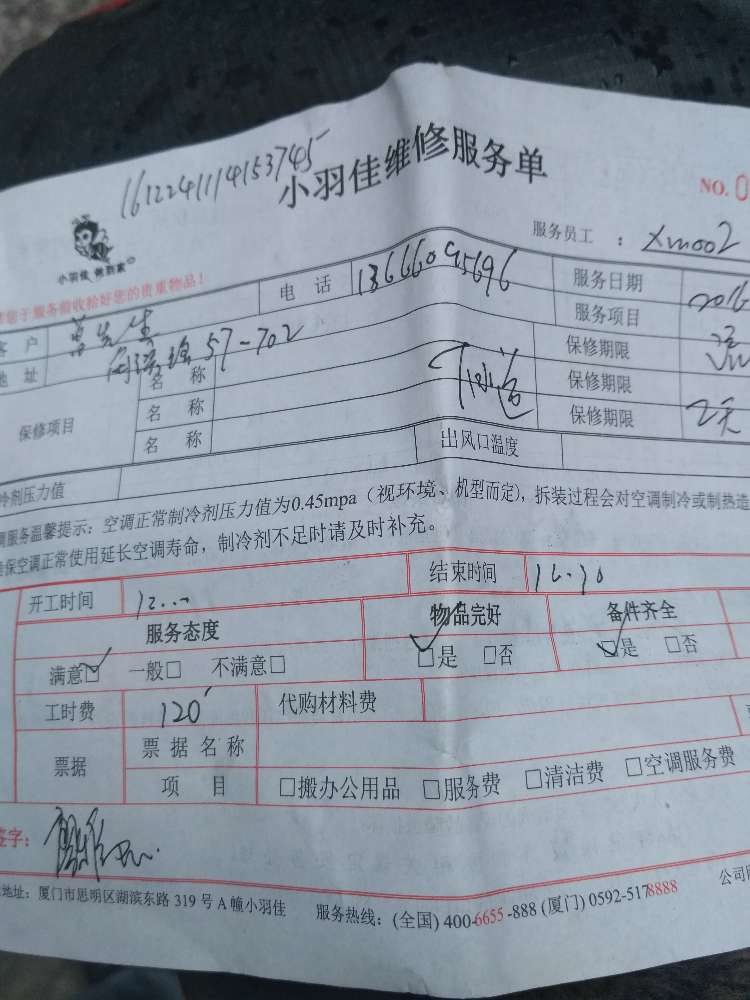 161224114153745
小羽佳维修服务单
NO. 0
小羽佳 做到家
服务员工 ： Xm002
您于服务前收拾好您的贵重物品！
客 户 先生 电 话 13666095696 服务日期 2016
地 址 57-702 服务项目
保修项目 名 称 保修期限
名 称 保修期限
名 称 保修期限 2天
冷剂压力值 出风口温度
调服务温馨提示：空调正常制冷剂压力值为0.45mpa（视环境、机型而定），拆装过程会对空调制冷或制热造
保空调正常使用延长空调寿命，制冷剂不足时请及时补充。
开工时间 12:00 结束时间 16:30
服务态度 物品完好 备件齐全
满意☑ 一般□ 不满意□ ☑是 □否 ☑是 □否
工时费 120 代购材料费
票据 票 据 名 称
项 目 □搬办公用品 □服务费 □清洁费 □空调服务费
签字：
地址：厦门市思明区湖滨东路 319 号 A 幢小羽佳 服务热线：(全国) 400-6655-888 (厦门) 0592-5178888 公司